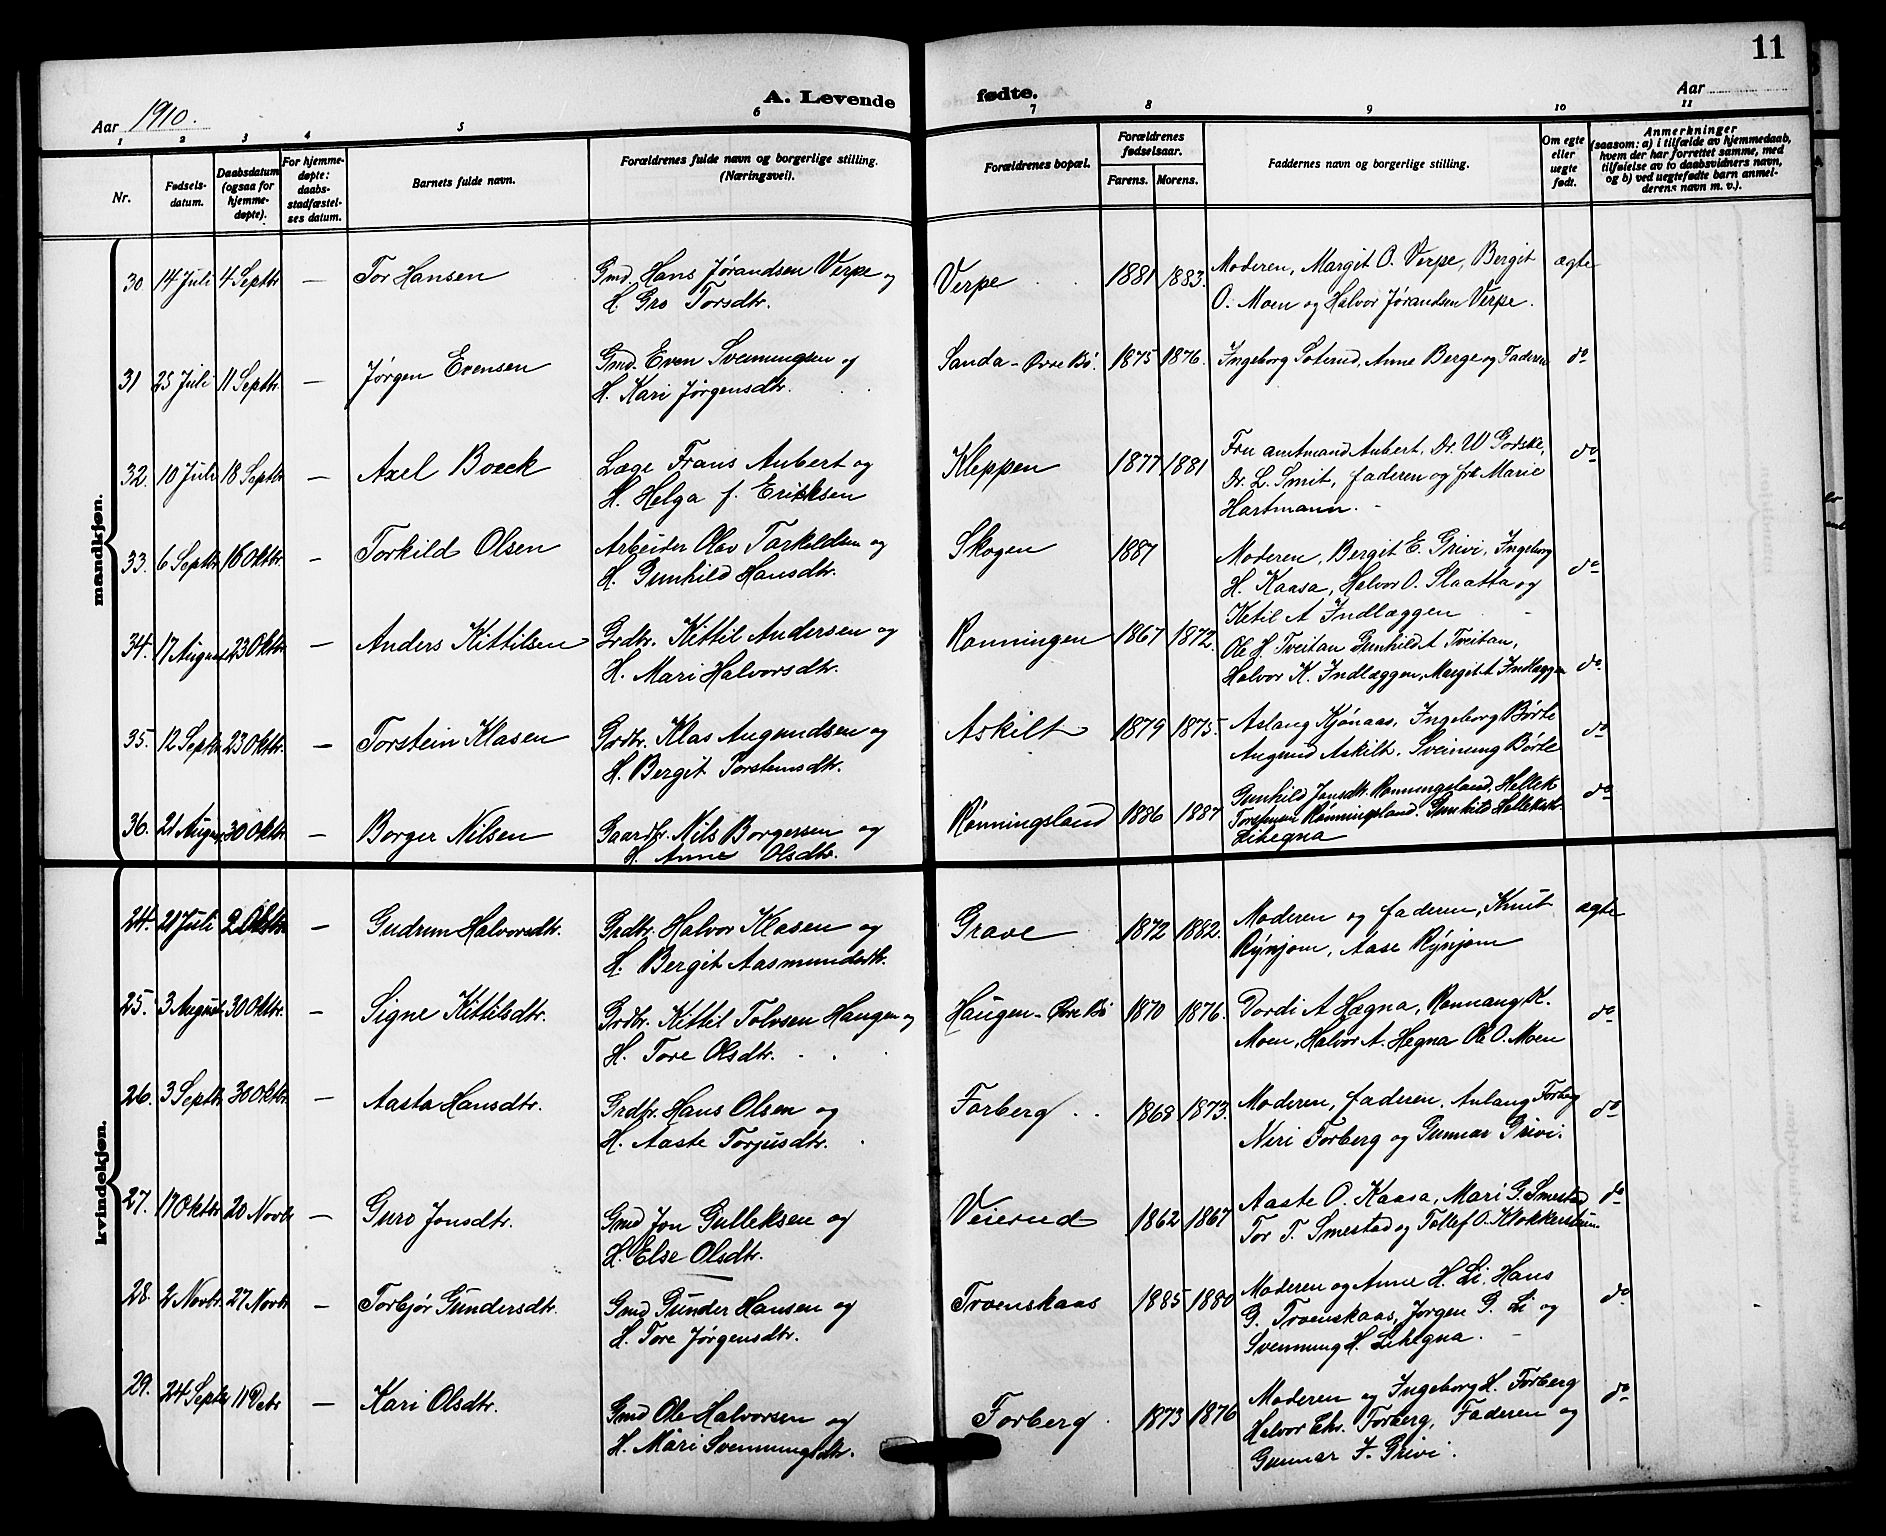 11
Aar 1910.
A. Levende fødte.
Aar
1 2 3 4 5 6 7 8 9 10 11
Nr.
Fødsels-
datum.
Daabsdatum
(ogsaa for
hjemme-
døpte).
For hjemme-
døpte:
daabs-
stadfæstel-
ses datum.
Barnets fulde navn.
Forældrenes fulde navn og borgerlige stilling.
(Næringsvei).
Forældrenes bopæl.
Forældrenes
fødselsaar.
Farens. Morens.
Faddernes navn og borgerlige stilling.
Om egte
eller
uegte
født.
Anmerkninger
(saasom: a) i tilfælde av hjemmedaab,
hvem der har forrettet samme, med
tilføielse av to daabsvidners navn,
og b) ved uegtefødte barn anmel-
derens navn m. v.).
mandkjøn.
30 14 Juli 4 Septbr — Tor Hansen Gmd. Hans Jørandsen Verpe og
H. Gro Torsdtr.
Verpe 1881 1883. Moderen, Margit O. Verpe, Bergit
O. Moen og Halvor Jørandsen Verpe.
ægte
31 25 Juli 11 Septbr — Jørgen Evensen Gmd. Even Svenningsen og
H. Kari Jørgensdtr.
Sanda - Øvre Bø. 1875 1876. Ingeborg Soterud, Anne Berge og Faderen do
32. 10 Juli 18 Septbr — Axel Boeck Læge Frans Aubert og
H. Helga f. Ericksen
Kleppen 1877 1881 Fru amtmand Aubert, Dr. W Godske,
Dr. L. Smit, faderen og frk Marie
Hartmann.
do
33. 6 Septbr 16 Oktbr. — Torkild Olsen Arbeider Olav Torkildsen og
H. Gunhild Hansdtr.
Skogen 1887 Moderen, Bergit E. Grivi, Ingeborg
H. Kaasa, Halvor O. Slaatta og
Ketil A Indlæggen
do
34. 17 August 23 Oktbr — Anders Kittilsen Grdbr. Kittil Andersen og
H. Mari Halvorsdtr.
Rønningen 1867 1872. Ole H. Tveitan Gunhild A Tveitan,
Halvor K. Indlæggen, Margit A Indlæggen
do
35. 12 Septbr 23 Oktbr. — Torstein Klasen Grdbr. Klas Augundsen og
H. Bergit Torsteinsdtr.
Askilt 1879 1875. Aslaug Kjønaas, Ingeborg Børte
Augund Askilt. Sveinung Børte
do
36. 21 August 30 Oktbr — Borger Nilsen Gaardbr. Nils Borgersen og
H. Anne Olsdtr.
Rønningsland 1886 1887 Gunhild Jonsdtr. Rønningsland, Hellek
Rønningsland. Gunhild Helleksdtr
Lihegna
do
kvindekjøn.
24. 21 Juli 2 Oktbr — Gudrun Halvorsdtr. Grdbr. Halvor Klasen og
H. Bergit Aasmundsdtr.
Grave 1872 1882. Moderen og faderen, Knut
Rynjom, Aase Rynjom
ægte
25. 3 August 30 Oktbr. — Signe Kittilsdtr. Grdbr. Kittil Tolvsen Haugen og
H. Tore Olsdtr.
Haugen - Øvre Bø 1870 1876. Dordi A Hægna, Rannaug H.
Moen, Halvor A. Hegna Ole O. Moen
do
26. 3 Septbr 30 Oktbr. — Aasta Hansdtr. Grdbr. Hans Olsen og
H. Aaste Torjusdtr.
Forberg 1868 1873. Moderen, faderen, Aslaug Forberg
Neri Forberg og Gunnar Grivi.
do
27. 17 Oktbr 20 Novbr — Guro Jonsdtr. Gmd Jon Gulleksen og
H. Else Olsdtr.
Veierud 1862 1867 Aaste O. Kaasa, Mari G. Smestad
Tor T. Smestad og Tollef O. Klokkerstuen
do
28. 2 Novbr. 27 Novbr — Torbjør Gundersdtr. Gmd Gunder Hansen og
H. Tore Jørgensdtr.
Troenskaas 1885 1880 Moderen og Anne H. Li, Hans
G. Troenskaas, Jørgen G. Li og
Svenning H. Lihegna.
do
29. 24 Septbr 11 Debr — Kari Olsdtr. Gmd Ole Halvorsen og
H. Mari Svenningsdtr.
Forberg 1873 1876 Moderen og Ingeborg H. Forberg
Halvor Forberg, Faderen og
Gunnar F. Grivi.
do